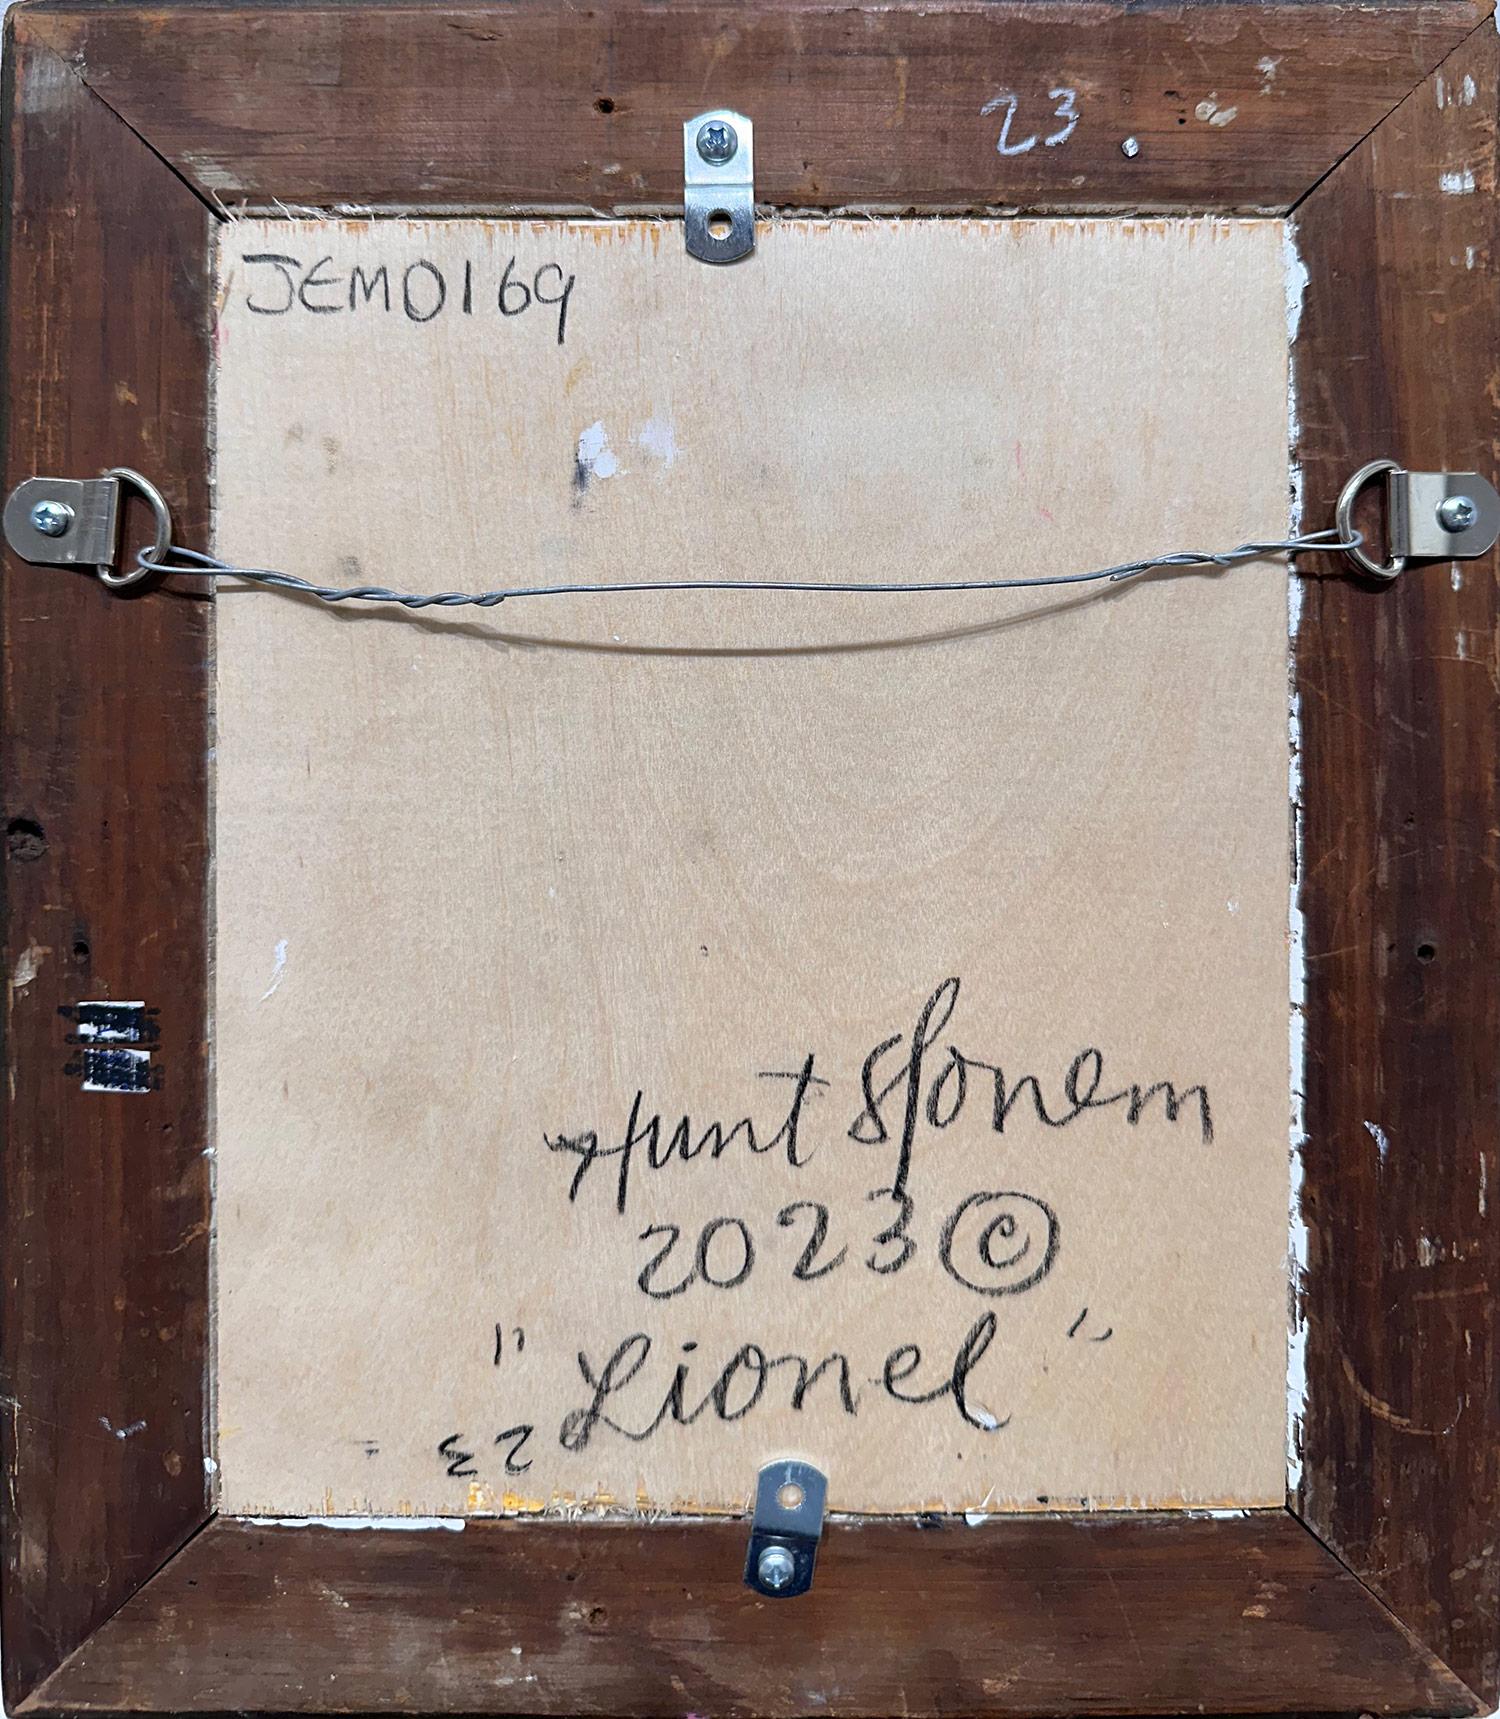 23.
JEM0169
Hunt Slonem
2023 ©
"Lionel"
23